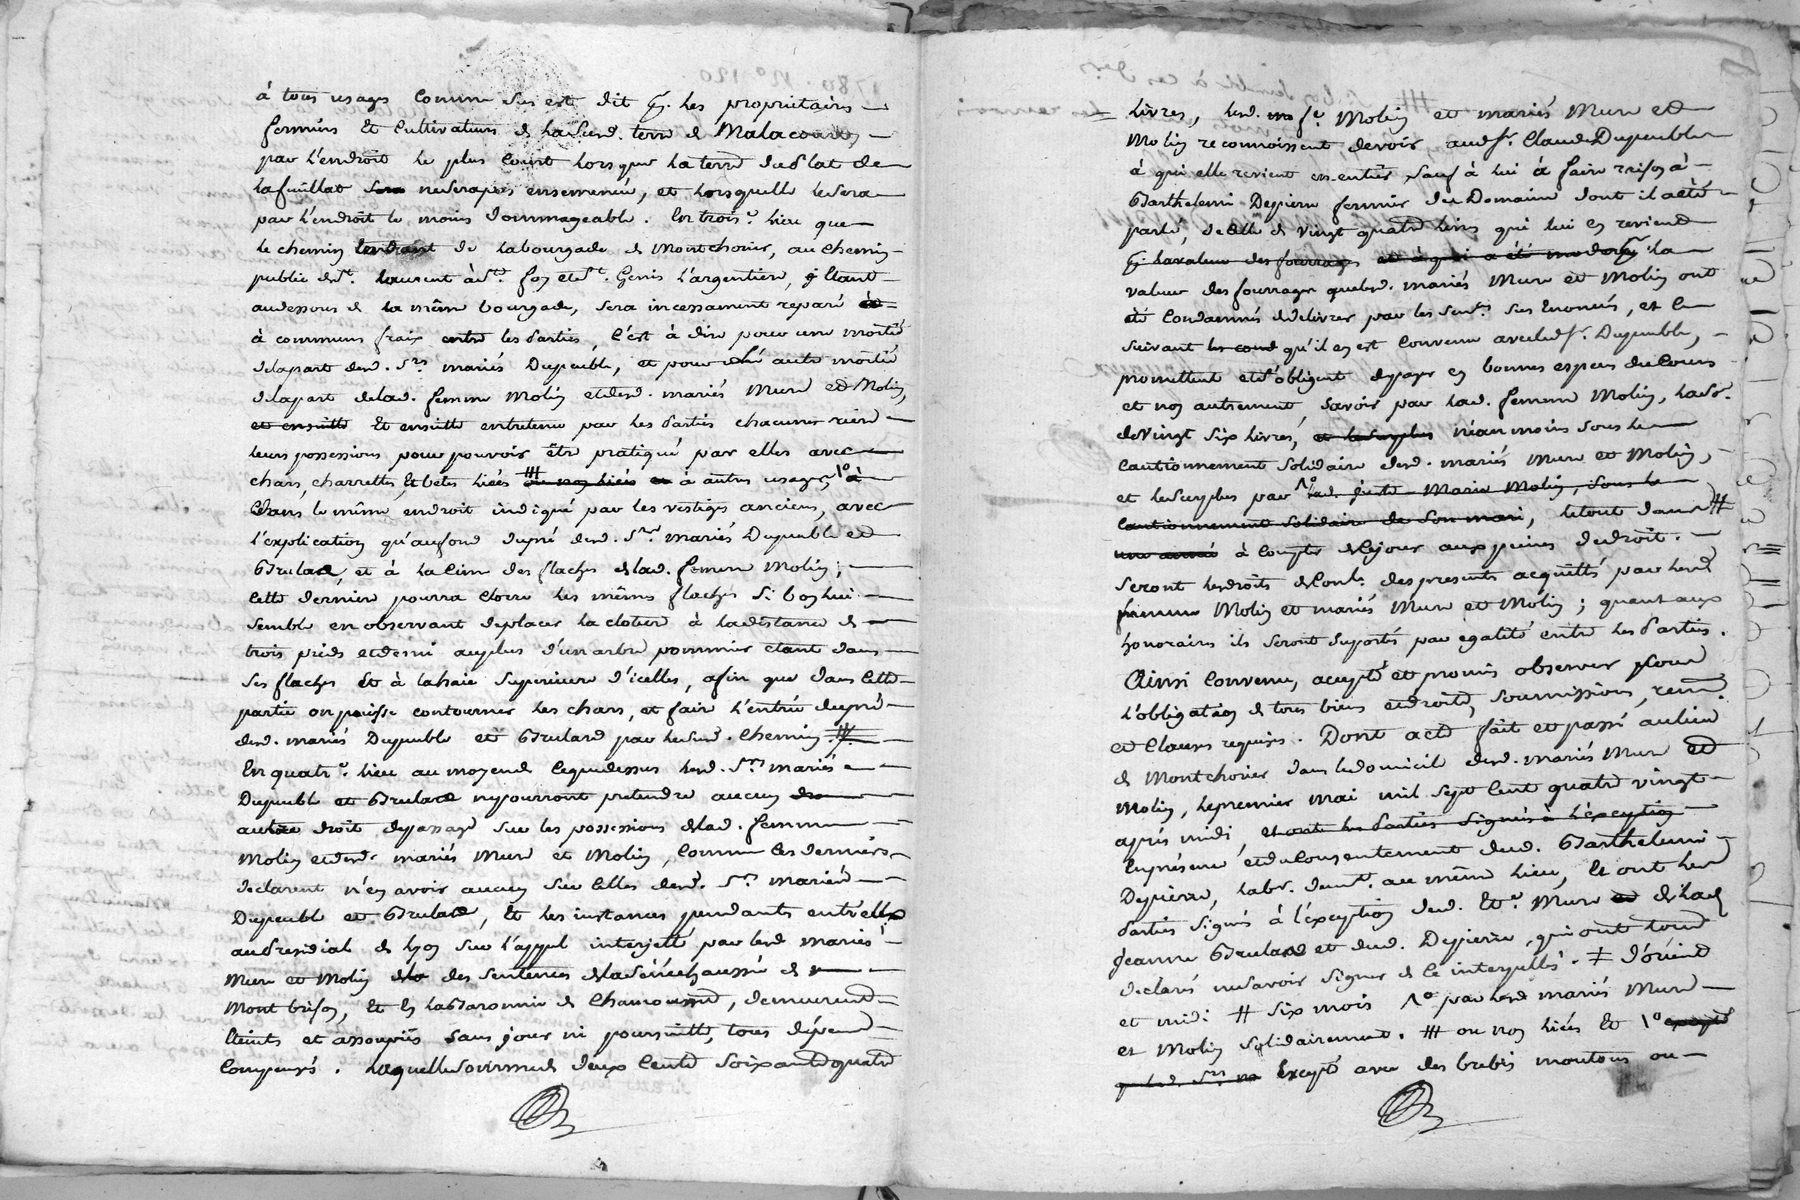 à tous usages comme sus est dit pr. les propriétaires
fermiers et cultivateurs de la susd. terre de Malacourdy
par l'endroit le plus court lorsque la terre du plat de
lafeuillat sera ne sera pas ensemencée, et lorsquelle le sera
par l'endroit le moins dommageable. En trois.e lieu que
le chemin tendant de la bourgade de Montchorier, au chemin
public de St. Laurent à Ste. foy et St. Genis l'argentiere, étant
audessous de la même bourgade, sera incessament reparé
à communs fraix entre les parties, c'est à dire pour une moitié
dela part desd. Srs. mariés Dupeuble, et pour autre moitié
dela part de lad. femme Molin et desd. mariés Mure et Molin,
et ensuitte et ensuitte entretenu par les parties chacunes riere
leurs possessions pour pouvoir être pratiqué par elles avec
chars, charrettes, et betes liées ou non liées à autres usages
dans le même endroit indiqué par les vestiges anciens, avec
l'explication qu'au fond du pré desd. Srs. mariés Dupeuble et
Brulard, et à la cime des flaches de lad. femme Molin;
cette derniere pourra clorre les mêmes flaches si bon lui
semble en observant de placer la cloture à la distance de
trois pieds et demi au plus d'un arbre pommier étant dans
ses flaches et à la haie superieure d'icelles, afin que dans cette
partie on puisse contourner les chars, et faire l'entrée du pré
desd. mariés Dupeuble et Brulard par le susd. chemin #
En quatr.e lieu au moyen de ce que dessus lesd. Srs. mariés
Dupeuble et Brulard ne pourront pretendre aucun
autre droit de passage sur les possessions de lad. femme
Molin et desd. mariés Mure et Molin, comme ces derniers
declarent n'en avoir aucun sur celles desd. Srs. mariés
Dupeuble et Brulard, et les instances pendantes entr'elles
au presidial de lyon sur l'appel interjetté par lesd. mariés
Mure et Molin de la des sentences de la sénéchaussée de
Montbrison, et en la Baronnie de Chamousset, demeurent
éteints et assoupies sans jour ni poursuitte, tous dépens
compensés. Laquelle somme de deux cents soixante quatre
livres, lesd. fe. Molin et mariés Mure et
Molin reconnoissent devoir aud. Sr. Claude Dupeuble
à qui elle revient en entier, sauf à lui à faire raison à
Barthelemi Depierre fermier du Domaine dont il a été
parlé, de celle de vingt quatre livres qui lui en revient
pr. la valeur des fourrages et à qui a été la
valeur des fourrages quelesd. mariés Mure et Molin ont
été condamnés de delivrer par les sent.s sus énoncées, et ce
suivant les cond qu'il en est convenu avec led. Sr. Dupeuble,
promettent et s'obligent de payer en bonnes especes du cours
et non autrement, savoir par lad. femme Molin, la
de vingt six livres, et le surplus néanmoins sous le
cautionnement solidaire desd. mariés Mure et Molin,
et le surplus par lad. Marie Molin, sous le
cautionnement solidaire de son mari, le tout dans #
une année à compter de ce jour aux peines de droit.
Seront les droits de cont. des presentes acquittés par lesd.
femme Molin et mariés Mure et Molin; quant aux
honoraires ils seront suportés par egalité entre les parties.
Ainsi convenu, accepté et promis observer pour
l'obligation de tous biens et droits, soumissions, renon.
et clauses requises. Dont acte fait et passé au lieu
de Montchorier dans le domicile desd. mariés Mure et
Molin, le premier mai mil sept cent quatre vingt
après midi, et ont les parties signés à l'exception
en présence et du consentement dud. Barthelemi
Depierre, labr. demt. au même lieu, et ont les
parties signés à l'exception dud. Et.e Mure et de lad.
Jeanne Brulard et dud. Depierre, qui ont tous
declarés ne savoir signer de ce interpellés. ≠ d'orient
et midi # six mois 1° par lesd mariés Mure
et Molin solidairement. ## ou non liées et 1° excepté
que lesd. Srs. excepté avec des brebis moutons ou